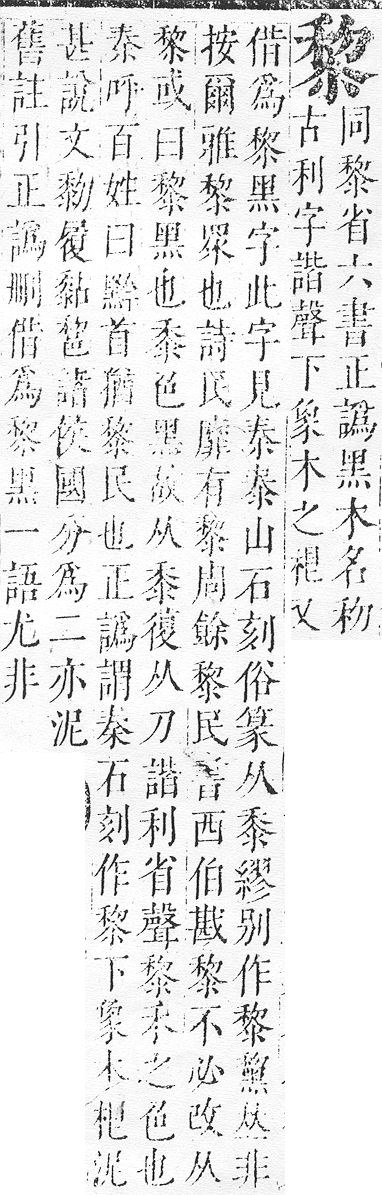 黎
同黎省六書正譌黑木名𥝢
古利字諧聲下象木之杝又
借爲黎黑字此字見秦泰山石刻俗篆从黍繆別作黎黧𠀤非
按爾雅黎眾也詩民靡有黎周餘黎民書西伯戡黎不必改从
黎或曰黎黑也黍色黑故从黍復从刀諧利省聲黎禾之色也
秦呼百姓曰黔首猶黎民也正譌謂秦石刻作黎下象木杝泥
甚說文履黏諸侯國分爲二亦泥
舊註引正譌刪借爲黎黑一語尤非